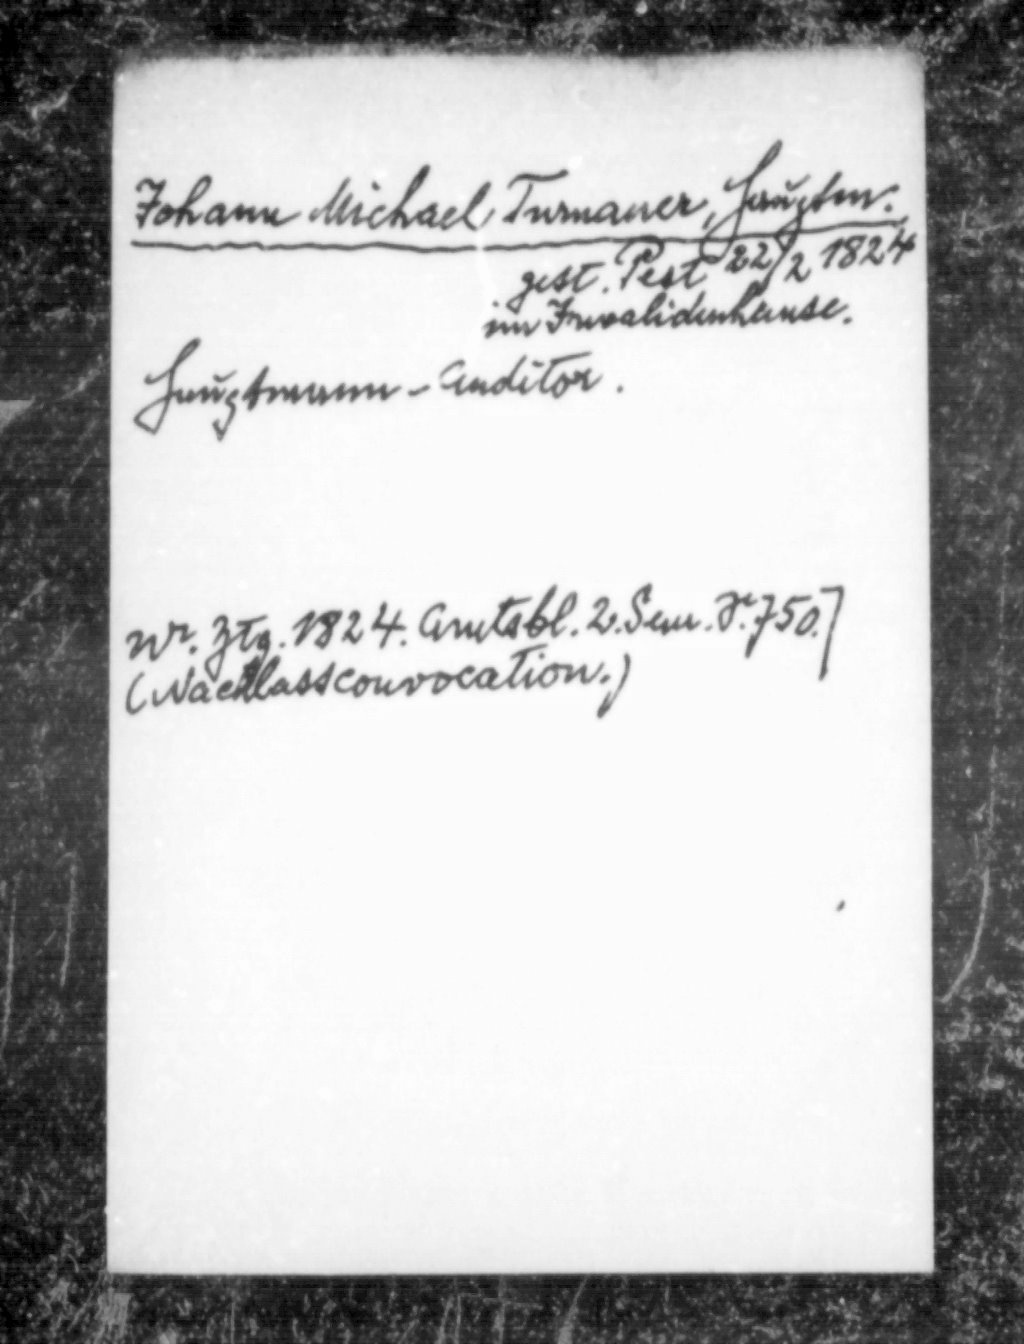 Johann Michael Turnauer, Hauptm.
gest. Pest 22/2 1824
im Invalidenhause.
Hauptmann-Auditor.
Wr. Ztg. 1824. Amtsbl. 2. Sem. S. 750.
(Nachlassconvocation.)